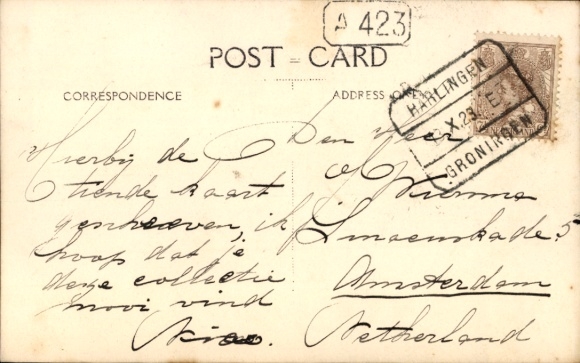 A 423
POST CARD
CORRESPONDENCE
ADDRESS ONLY
HARLINGEN
X.29
GRONINGEN
Hierbij de
tiende kaart
geschreven, ik
hoop dat je
deze collectie
mooi vind
Den Heer
Wiersma
5
Amsterdam
Netherland